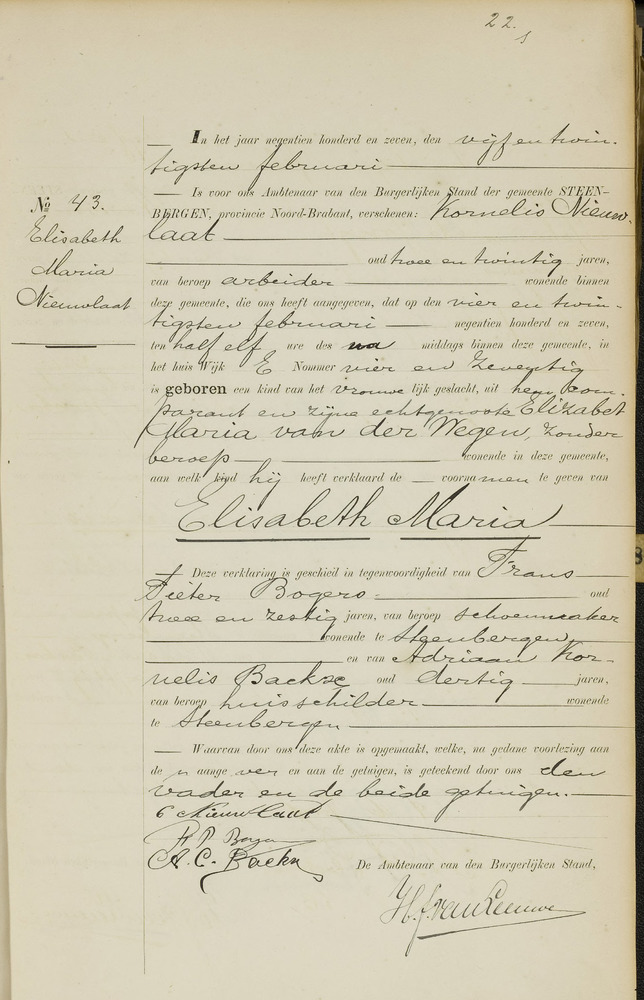 22.
No 43.
Elisabeth
Maria
Nieuwlaat
In het jaar negentien honderd en zeven, den vijf en twin-
tigsten februari
Is voor ons Ambtenaar van den Burgerlijken Stand der gemeente STEEN-
BERGEN, provincie Noord-Brabant, verschenen: Kornelis Nieuw-
laat
oud twee en twintig jaren,
van beroep arbeider wonende binnen
deze gemeente, die ons heeft aangegeven, dat op den vier en twin-
tigsten februari negentien honderd en zeven,
ten half elf ure des na middags binnen deze gemeente, in
het huis Wijk E Nommer vier en zeventig
is geboren een kind van het vrouwe lijk geslacht, uit hem com-
parant en zijne echtgenoote Elizabet
Maria van der Wegen, zonder
beroep wonende in deze gemeente,
aan welk kind hij heeft verklaard de voorna men te geven van
Elisabeth Maria
Deze verklaring is geschied in tegenwoordigheid van Frans
Pieter Bogers oud
twee en zestig jaren, van beroep schoenmaker
wonende te Steenbergen,
en van Adriaan Kor-
nelis Backx oud dertig jaren,
van beroep huisschilder wonende
te Steenbergen
Waarvan door ons deze akte is opgemaakt, welke, na gedane voorlezing aan
de n aange ver en aan de getuigen, is geteekend door ons den
vader en de beide getuigen.
C Nieuwlaat
A. C. Backx
De Ambtenaar van den Burgerlijken Stand,
H. J. van Leeuwe